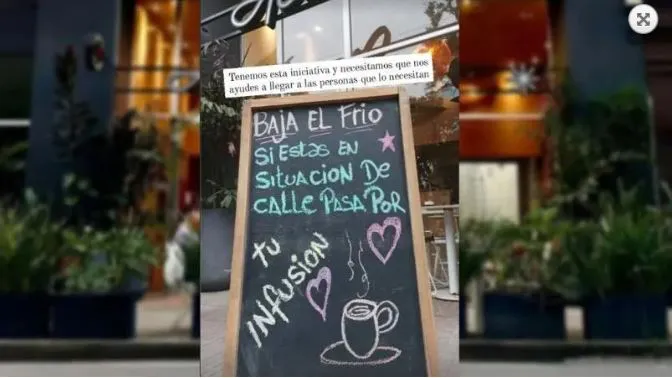 Tenemos esta iniciativa y necesitamos que nos
ayudes a llegar a las personas que lo necesitan
BAJA EL FRIO
Si EStas EN
SituaciON DE
CallE Pasa Por
tu
INfusioN